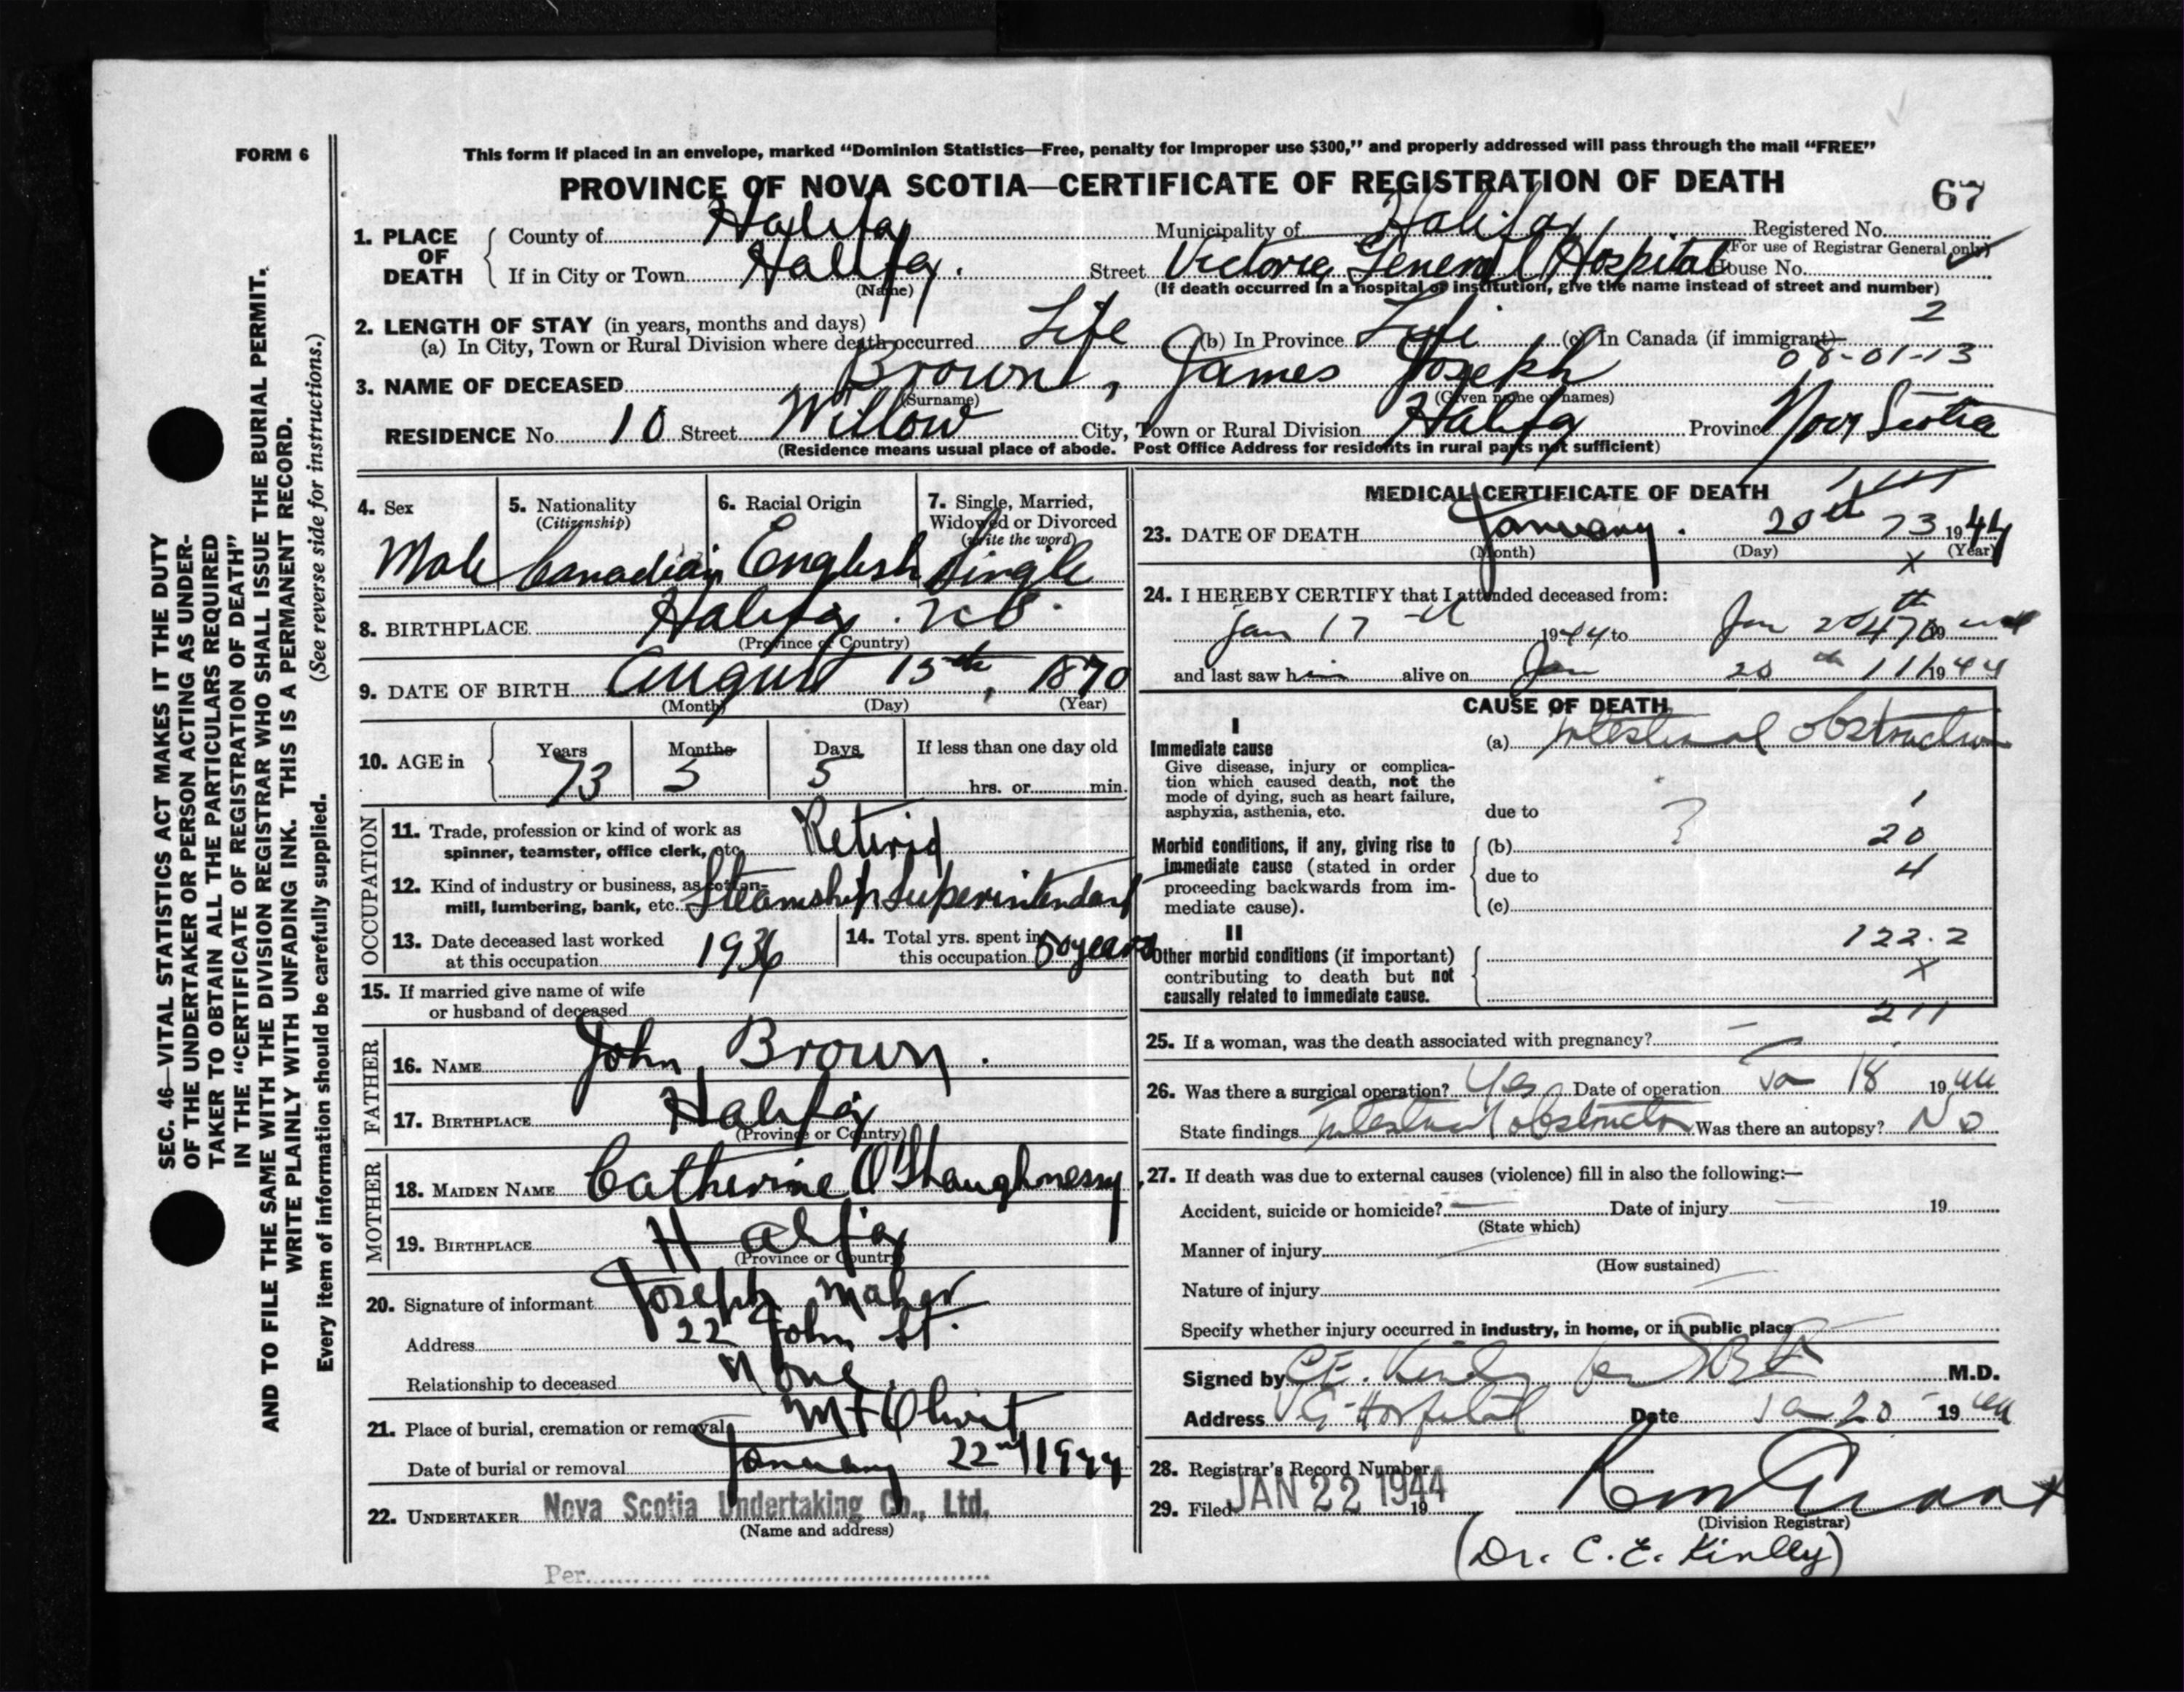 FORM 6
This form if placed in an envelope, marked “Dominion Statistics—Free, penalty for improper use $300,” and properly addressed will pass through the mail “FREE”
PROVINCE OF NOVA SCOTIA—CERTIFICATE OF REGISTRATION OF DEATH
67
1. PLACE OF DEATH
County of Halifax Municipality of Halifax Registered No.
(For use of Registrar General only)
If in City or Town Halifax. Street Victoria General Hospital House No.
(Name) (If death occurred in a hospital or institution, give the name instead of street and number)
2. LENGTH OF STAY (in years, months and days) 2
(a) In City, Town or Rural Division where death occurred Life (b) In Province Life (c) In Canada (if immigrant)
08-01-13
3. NAME OF DECEASED Brown, James Joseph
(Surname) (Given name or names)
RESIDENCE No. 10 Street Willow City, Town or Rural Division Halifax Province Nova Scotia
(Residence means usual place of abode. Post Office Address for residents in rural parts not sufficient)
4. Sex Male
5. Nationality (Citizenship) Canadian
6. Racial Origin English
7. Single, Married, Widowed or Divorced (write the word) Single
8. BIRTHPLACE Halifax. N.S.
(Province or Country)
9. DATE OF BIRTH August 15th, 1870
(Month) (Day) (Year)
10. AGE in Years 73 Months 5 Days 5 If less than one day old
hrs. or min.
OCCUPATION
11. Trade, profession or kind of work as
spinner, teamster, office clerk, etc. Retirid
12. Kind of industry or business, as cotton-
mill, lumbering, bank, etc. Steamship Superintendant
13. Date deceased last worked
at this occupation 1936
14. Total yrs. spent in
this occupation 50 years
15. If married give name of wife
or husband of deceased
FATHER
16. NAME John Brown.
17. BIRTHPLACE Halifax
(Province or Country)
MOTHER
18. MAIDEN NAME Catherine O'Shaughnessy
19. BIRTHPLACE Halifax
(Province or Country)
20. Signature of informant Joseph Maher
Address 22 John St.
Relationship to deceased None
21. Place of burial, cremation or removal Mt Olivit
Date of burial or removal January 22nd 1944
22. UNDERTAKER Nova Scotia Undertaking Co., Ltd.
(Name and address)
Per
MEDICAL CERTIFICATE OF DEATH
23. DATE OF DEATH January. 20th 73 1944
(Month) (Day) (Year)
x
24. I HEREBY CERTIFY that I attended deceased from:
Jan 17 1944 to Jan 20th
and last saw him alive on Jan 20th 1944
CAUSE OF DEATH
I
Immediate cause
Give disease, injury or complica-
tion which caused death, not the
mode of dying, such as heart failure,
asphyxia, asthenia, etc.
(a) Intestinal obstruction
due to ? 1
Morbid conditions, if any, giving rise to
immediate cause (stated in order
proceeding backwards from im-
mediate cause).
(b) 20
due to 4
(c)
II
122.2
Other morbid conditions (if important)
contributing to death but not
causally related to immediate cause.
x
211
25. If a woman, was the death associated with pregnancy?
26. Was there a surgical operation? Yes Date of operation Jan 18 1944
State findings Intestinal obstruction Was there an autopsy? No
27. If death was due to external causes (violence) fill in also the following:—
Accident, suicide or homicide? Date of injury 19
(State which)
Manner of injury
(How sustained)
Nature of injury
Specify whether injury occurred in industry, in home, or in public place
Signed by C.E. Kinley M.D.
Address V G Hospital Date Jan 20 1944
28. Registrar's Record Number
29. Filed JAN 22 1944 19
(Division Registrar)
(Dr. C. E. Kinley)
SEC. 46—VITAL STATISTICS ACT MAKES IT THE DUTY
OF THE UNDERTAKER OR PERSON ACTING AS UNDER-
TAKER TO OBTAIN ALL THE PARTICULARS REQUIRED
IN THE “CERTIFICATE OF REGISTRATION OF DEATH”
AND TO FILE THE SAME WITH THE DIVISION REGISTRAR WHO SHALL ISSUE THE BURIAL PERMIT.
WRITE PLAINLY WITH UNFADING INK. THIS IS A PERMANENT RECORD.
Every item of information should be carefully supplied. (See reverse side for instructions.)